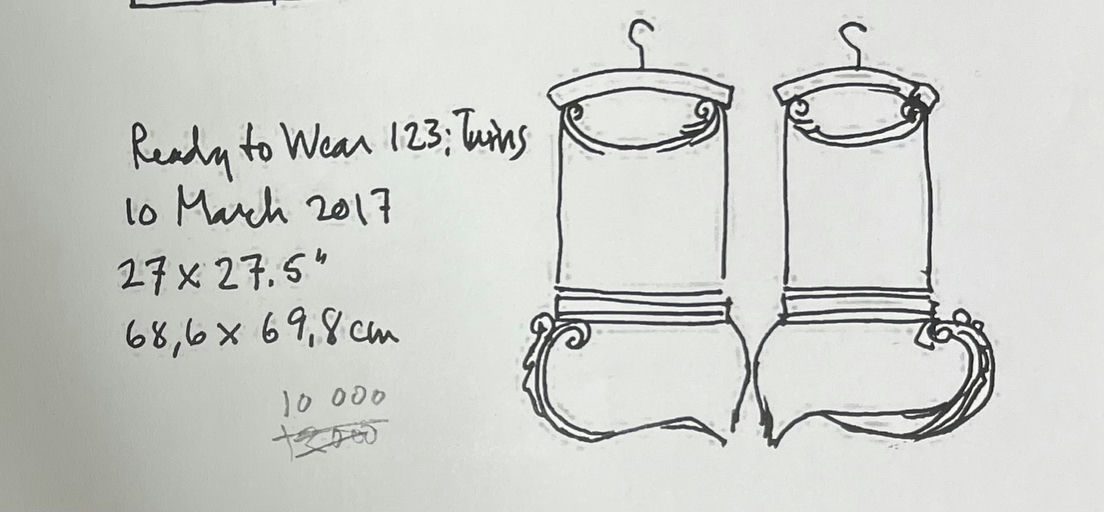 Ready to Wear 123: Twins
10 March 2017
27 x 27.5"
68,6 x 69,8 cm
10 000